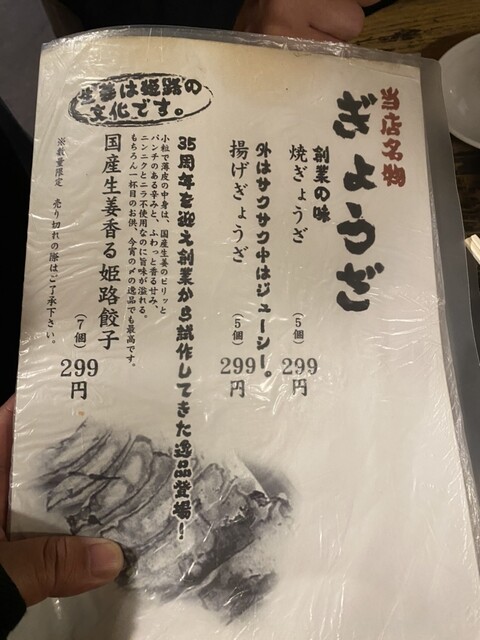 当店名物
ぎょうざ
創業の味
焼ぎょうざ
(5個)
299
円
外はサクサク中はジューシー。
揚げぎょうざ
(5個)
299
円
35周年を迎え創業から試作してきた逸品登場!
小粒で薄皮の中身は、国産生姜のピリッと
パンチのある辛みと、ふわっと香る甘み、
ニンニクとニラ不使用なのに旨味が溢れる。
もちろん一杯目のお供、今宵の〆の逸品でも最高です。
国産生姜香る姫路餃子
(7個)
299
円
※数量限定 売り切れの際はご了承下さい。
生姜は姫路の
文化です。